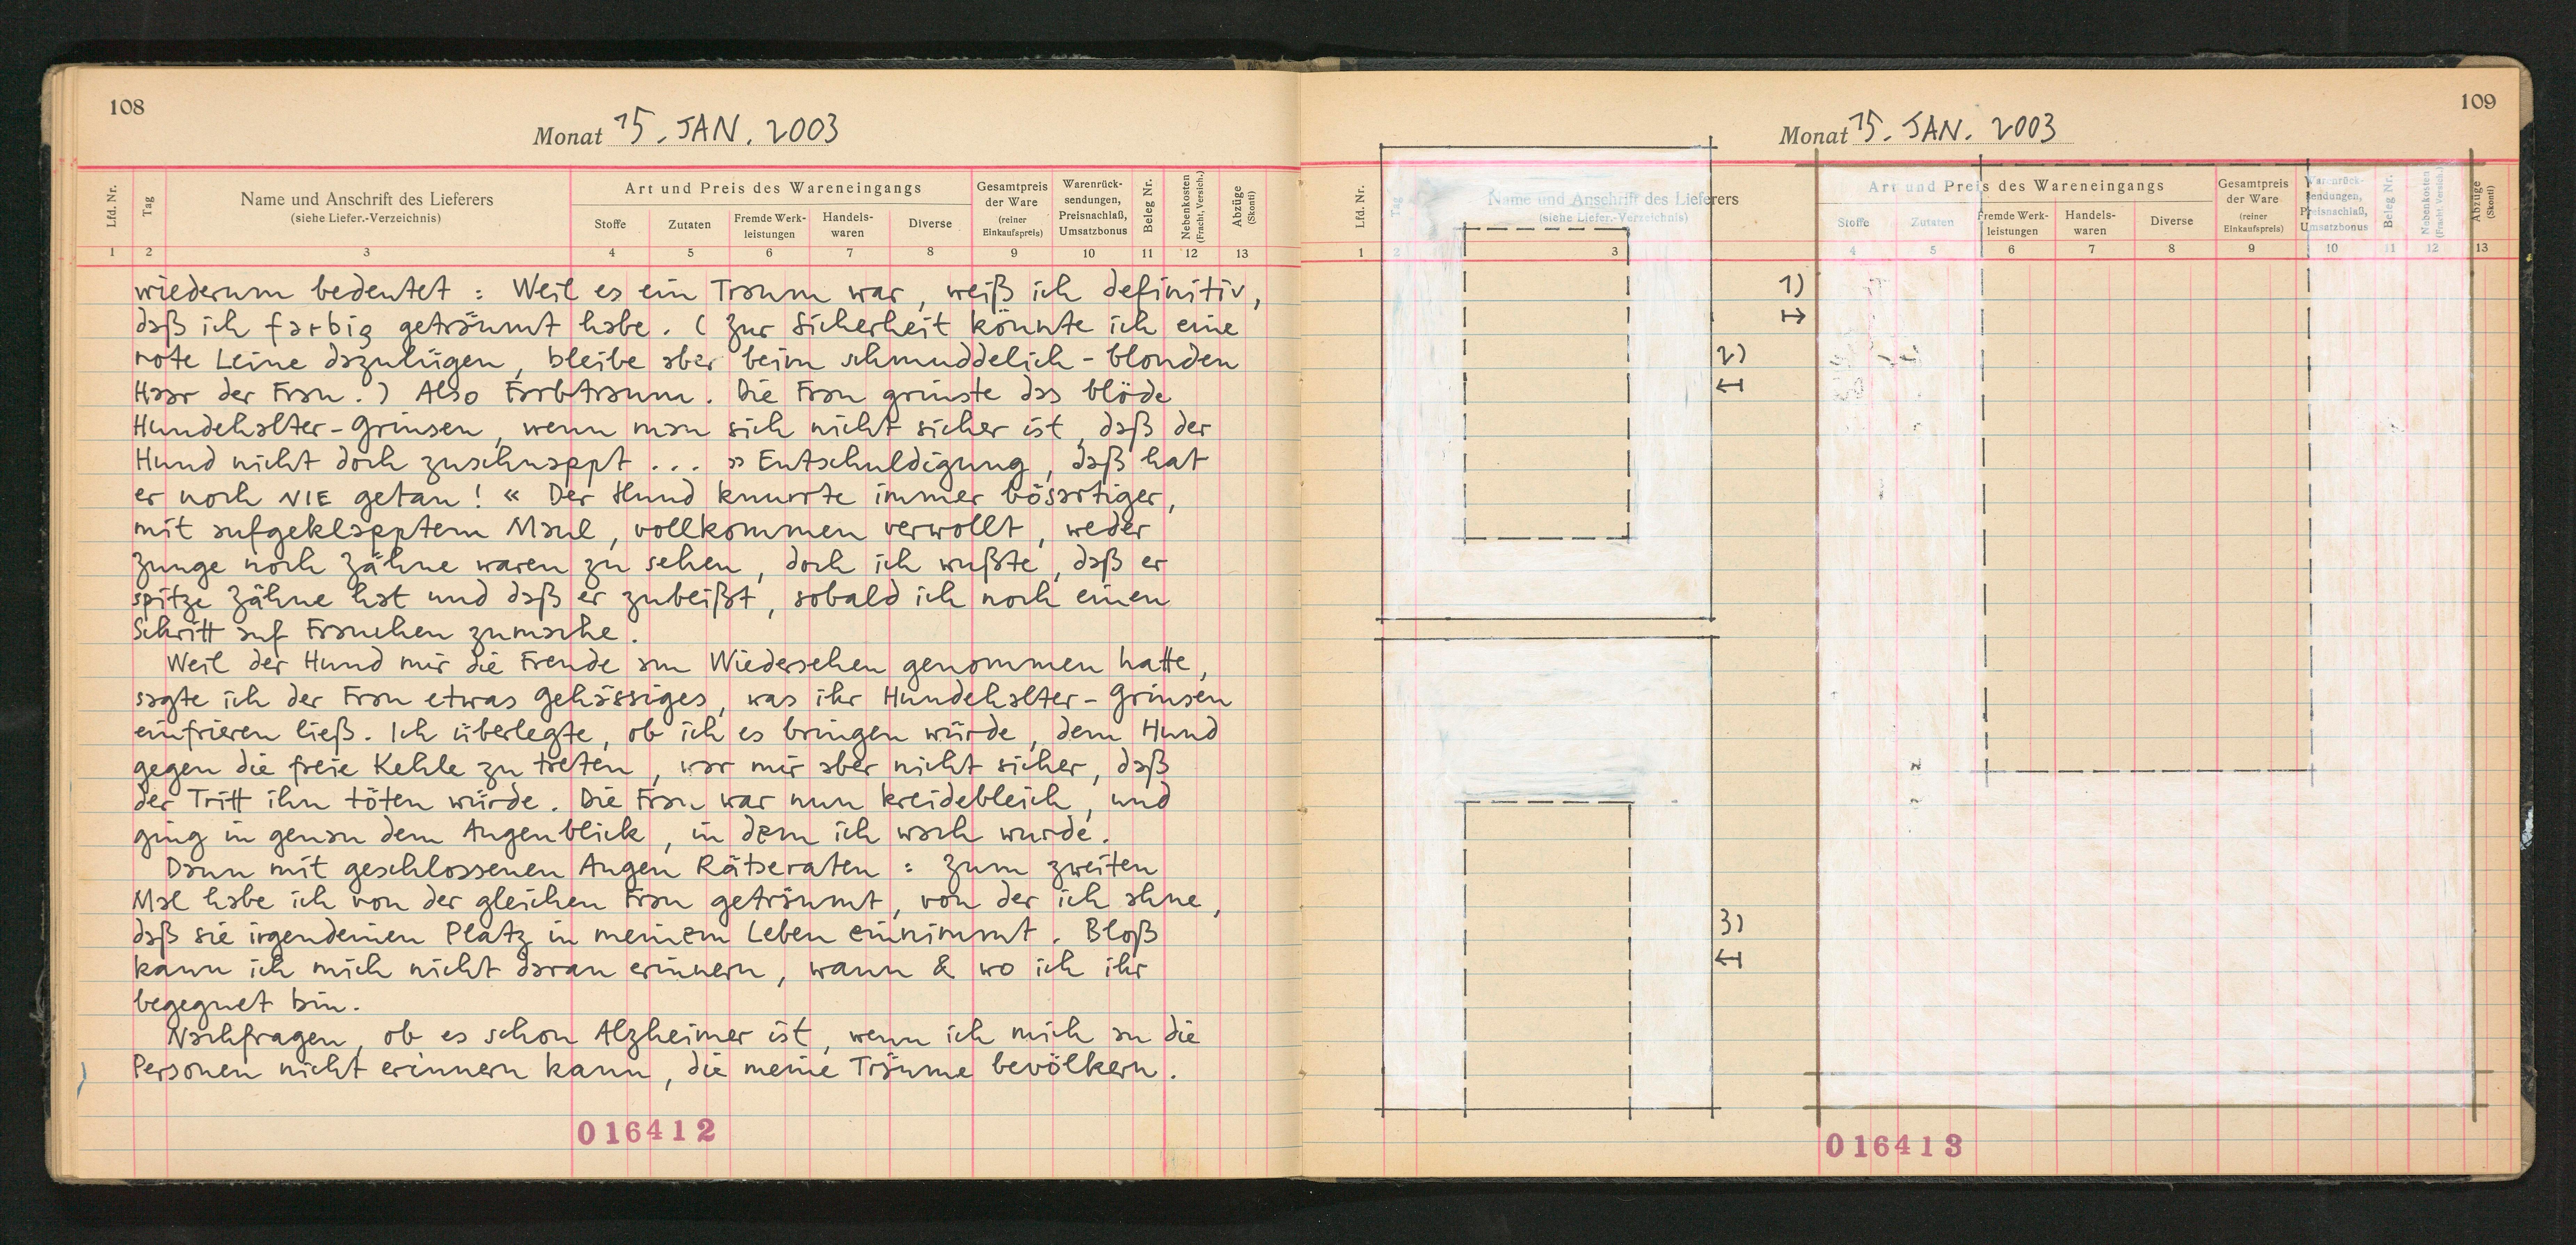 108
Monat 15. JAN. 2003
Lfd. Nr.
Tag
Name und Anschrift des Lieferers
(siehe Liefer.-Verzeichnis)
Art und Preis des Wareneingangs
Stoffe
Zutaten
Fremde Werk-
leistungen
Handels-
waren
Diverse
Gesamtpreis
der Ware
(reiner
Einkaufspreis)
Warenrück-
sendungen,
Preisnachlaß,
Umsatzbonus
Beleg Nr.
Nebenkosten
(Fracht, Versich.)
Abzüge
(Skonti)
1 2 3 4 5 6 7 8 9 10 11 12 13
wiederum bedeutet : Weil es ein Traum war, weiß ich definitiv,
daß ich farbig geträumt habe. ( Zur Sicherheit könnte ich eine
rote Leine dazulügen, bleibe aber beim schmuddelich-blonden
Haar der Frau. ) Also Farbtraum. Die Frau grinste das blöde
Hundehalter-Grinsen, wenn man sich nicht sicher ist, daß der
Hund nicht doch zuschnappt ... » Entschuldigung, daß hat
er noch NIE getan! « Der Hund knurrte immer bösartiger,
mit aufgeklapptem Maul, vollkommen verwollt, weder
Zunge noch Zähne waren zu sehen, doch ich wußte, daß er
spitze Zähne hat und daß er zubeißt, sobald ich noch einen
Schritt auf Frauchen zumache.
Weil der Hund mir die Freude am Wiedersehen genommen hatte,
sagte ich der Frau etwas Gehässiges, was ihr Hundehalter-Grinsen
einfrieren ließ. Ich überlegte, ob ich es bringen würde, dem Hund
gegen die freie Kehle zu treten, war mir aber nicht sicher, daß
der Tritt ihn töten würde. Die Frau war nun kreidebleich, und
ging in genau dem Augenblick, in dem ich wach wurde.
Dann mit geschlossenen Augen Rätseraten : Zum zweiten
Mal habe ich von der gleichen Frau geträumt, von der ich ahne,
daß sie irgendeinen Platz in meinem Leben einnimmt. Bloß
kann ich mich nicht daran erinnern, wann & wo ich ihr
begegnet bin.
Nachfragen, ob es schon Alzheimer ist, wenn ich mich an die
Personen nicht erinnern kann, die meine Träume bevölkern.
016412
109
Monat 15. JAN. 2003
Lfd. Nr.
Tag
Name und Anschrift des Lieferers
(siehe Liefer.-Verzeichnis)
Art und Preis des Wareneingangs
Stoffe
Zutaten
Fremde Werk-
leistungen
Handels-
waren
Diverse
Gesamtpreis
der Ware
(reiner
Einkaufspreis)
Warenrück-
sendungen,
Preisnachlaß,
Umsatzbonus
Beleg Nr.
Nebenkosten
(Fracht, Versich.)
Abzüge
(Skonti)
1 2 3 4 5 6 7 8 9 10 11 12 13
1)
2)
3)
016413